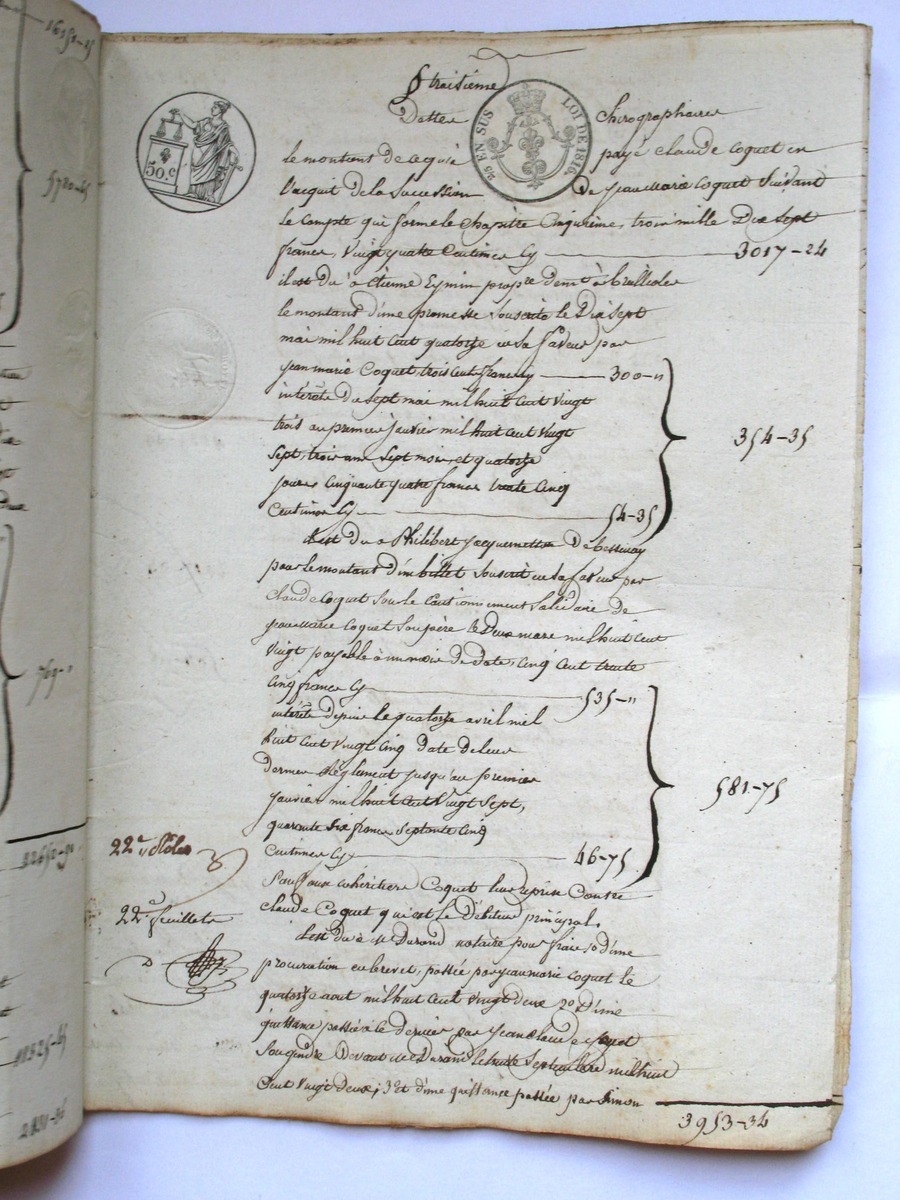 § troisième
Dettes Chirographaires
EN SUS LOI DE 1816
50.c
le montant de ce qu'a payé Claude Coquet en
l'acquit de la Succession De Jean Marie Coquet Suivant
le Compte qui forme le Chapitre Cinquième, trois mille Dix Sept
francs, Vingt quatre Centimes Cy 3017-24
il est du à Etienne Eymin propre dem.t à brullioles
le montant d'une promesse Souscrite le Dix Sept
mai mil huit Cent quatorze en sa faveur par
Jean marie Coquet, trois Cent francs Cy 300-"
intérêts du Sept mai mil huit Cent Vingt
trois au premier janvier mil huit Cent Vingt
Sept, trois ans Sept mois, et quatorze
jours Cinquante quatre francs trente Cinq
Centimes Cy 54-35
354-35
il est du à Philibert Jacquemetton De bessenay
pour le montant d'un billet Souscrit en sa faveur par
Claude Coquet Sous le Cautionnement Solidaire de
jean Marie Coquet Son père le Deux mars mil huit Cent
Vingt payable à un mois de Date, Cinq Cent trente
Cinq francs Cy 535-"
intérêts depuis le quatorze avril mil
huit Cent Vingt Cinq date de leur
dernier Règlement jusqu'au premier
janvier mil huit Cent Vingt Sept,
quarante Six francs Septante Cinq
Centimes Cy 46-75
581-75
22.e Rôles
Sauf aux Cohéritiers Coquet leur reprise Contre
Claude Coquet qui est le Débiteur principal.
22.e feuillets
il est du à M.e Durand notaire pour frais 1o d'une
procuration en brevet, passée par jean marie Coquet le
quatorze aout mil huit Cent Vingt deux 2o D'une
quittance passée à ce dernier par Jean Claude
Son gendre Devant M.e Durand le huit Septembre mil huit
Cent Vingt deux; 3o et d'une quittance passée par Simon
3953-34
16151-25
5780-45
769-"
22650-90
18525-45
2831-96